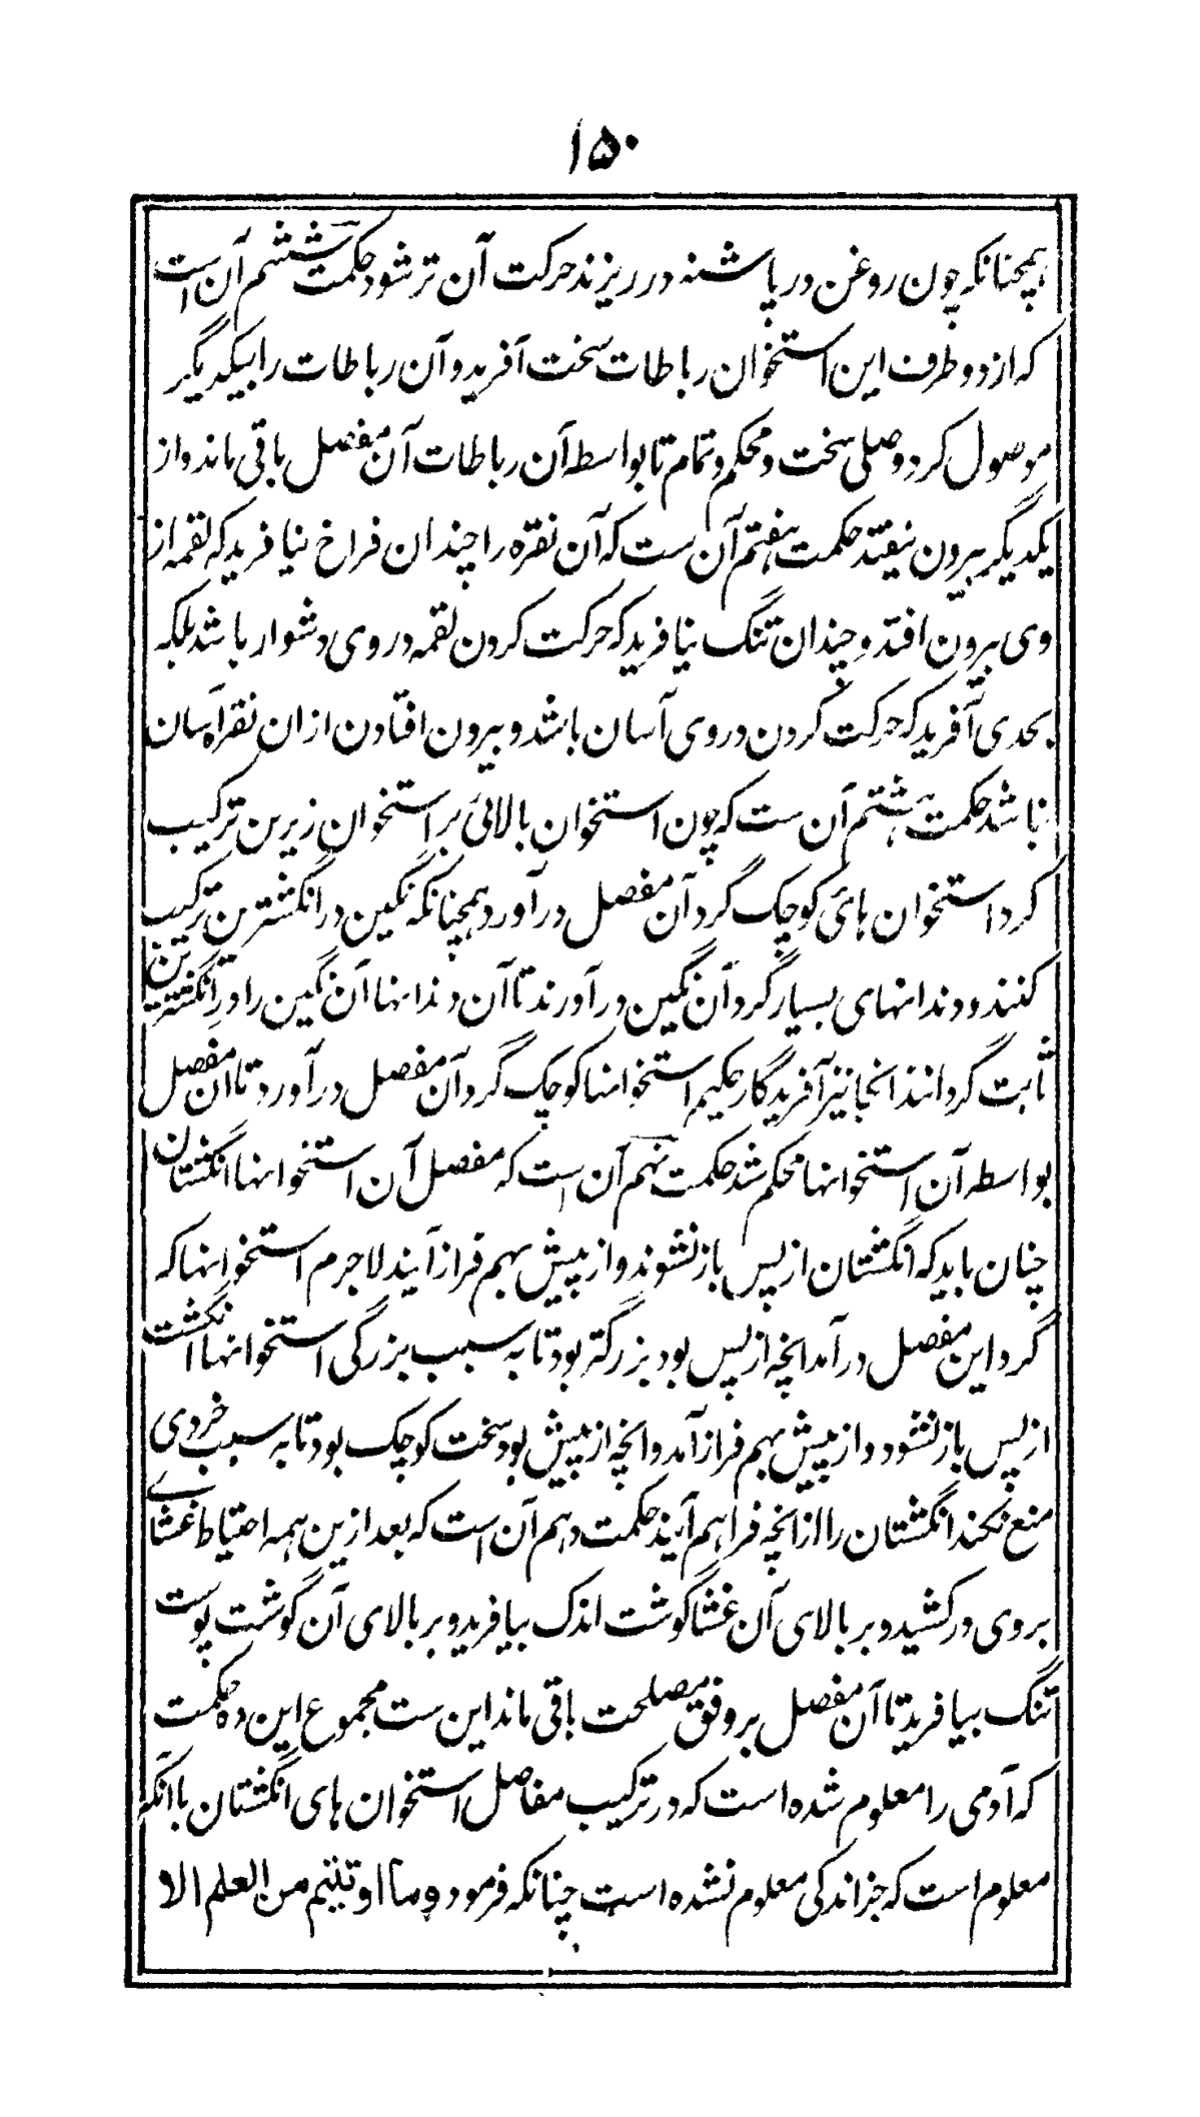 ۱۵۰
همچنانکه چون روغن در پاشنه در ریزند حرکت آن تر شود حکمت ششم آن است
که از دو طرف این استخوان رباطات سخت آفرید و آن رباطات را بیکدیگر
موصول کرد وصلی سخت و محکم و تمام تا بواسطه آن رباطات آن مفصل باقی ماند و از
یکدیگر بیرون نیفتد حکمت هفتم آن ست که آن نقره را چندان فراخ نیافرید که لقمه از
وی بیرون افتد و چندان تنگ نیافرید که حرکت کردن لقمه در وی دشوار باشد بلکه
بحدی آفرید که حرکت کردن در وی آسان باشد و بیرون افتادن از ان نقره آسان
نباشد حکمت هشتم آن ست که چون استخوان بالائی بر استخوان زیرین ترکیب
کرد استخوان های کوچک گرد آن مفصل در آورد همچنانکه نگین در انگشترین ترکیب
کنند و دندانهای بسیار گرد آن نگین در آورند تا آن دندانها آن نگین را در انگشترین
ثابت گردانند انجا نیز آفریدگار حکیم استخوانها کوچک گرد آن مفصل در آورد تا ان مفصل
بواسطه آن استخوانها محکم شد حکمت نهم آن است که مفصل آن استخوانها انگشتان
چنان باید که انگشتان از پس باز نشوند و از پیش بهم فراز آیند لاجرم استخوانها که
گرد این مفصل در آمد انچه از پس بود بزرگتر بود تا به سبب بزرگی استخوانها انگشت
از پس باز نشود و از پیش بهم فراز آمد و انچه از پیش بود سخت کوچک بود تا به سبب خردی
منع نکند انگشتان را از انچه فراهم آیند حکمت دهم آن است که بعد ازین همه احتیاط غشائے
بر وی در کشید و بر بالای آن غشا گوشت اندک بیافرید و بر بالای آن گوشت پوست
تنگ بیافرید تا آن مفصل بر وفق مصلحت باقی ماند این ست مجموع این ده حکمت
که آدمی را معلوم شده است که در ترکیب مفاصل استخوان های انگشتان با آنکه
معلوم است که جز اندکی معلوم نشده است چنانکه فرمود وما اوتیتم من العلم الا